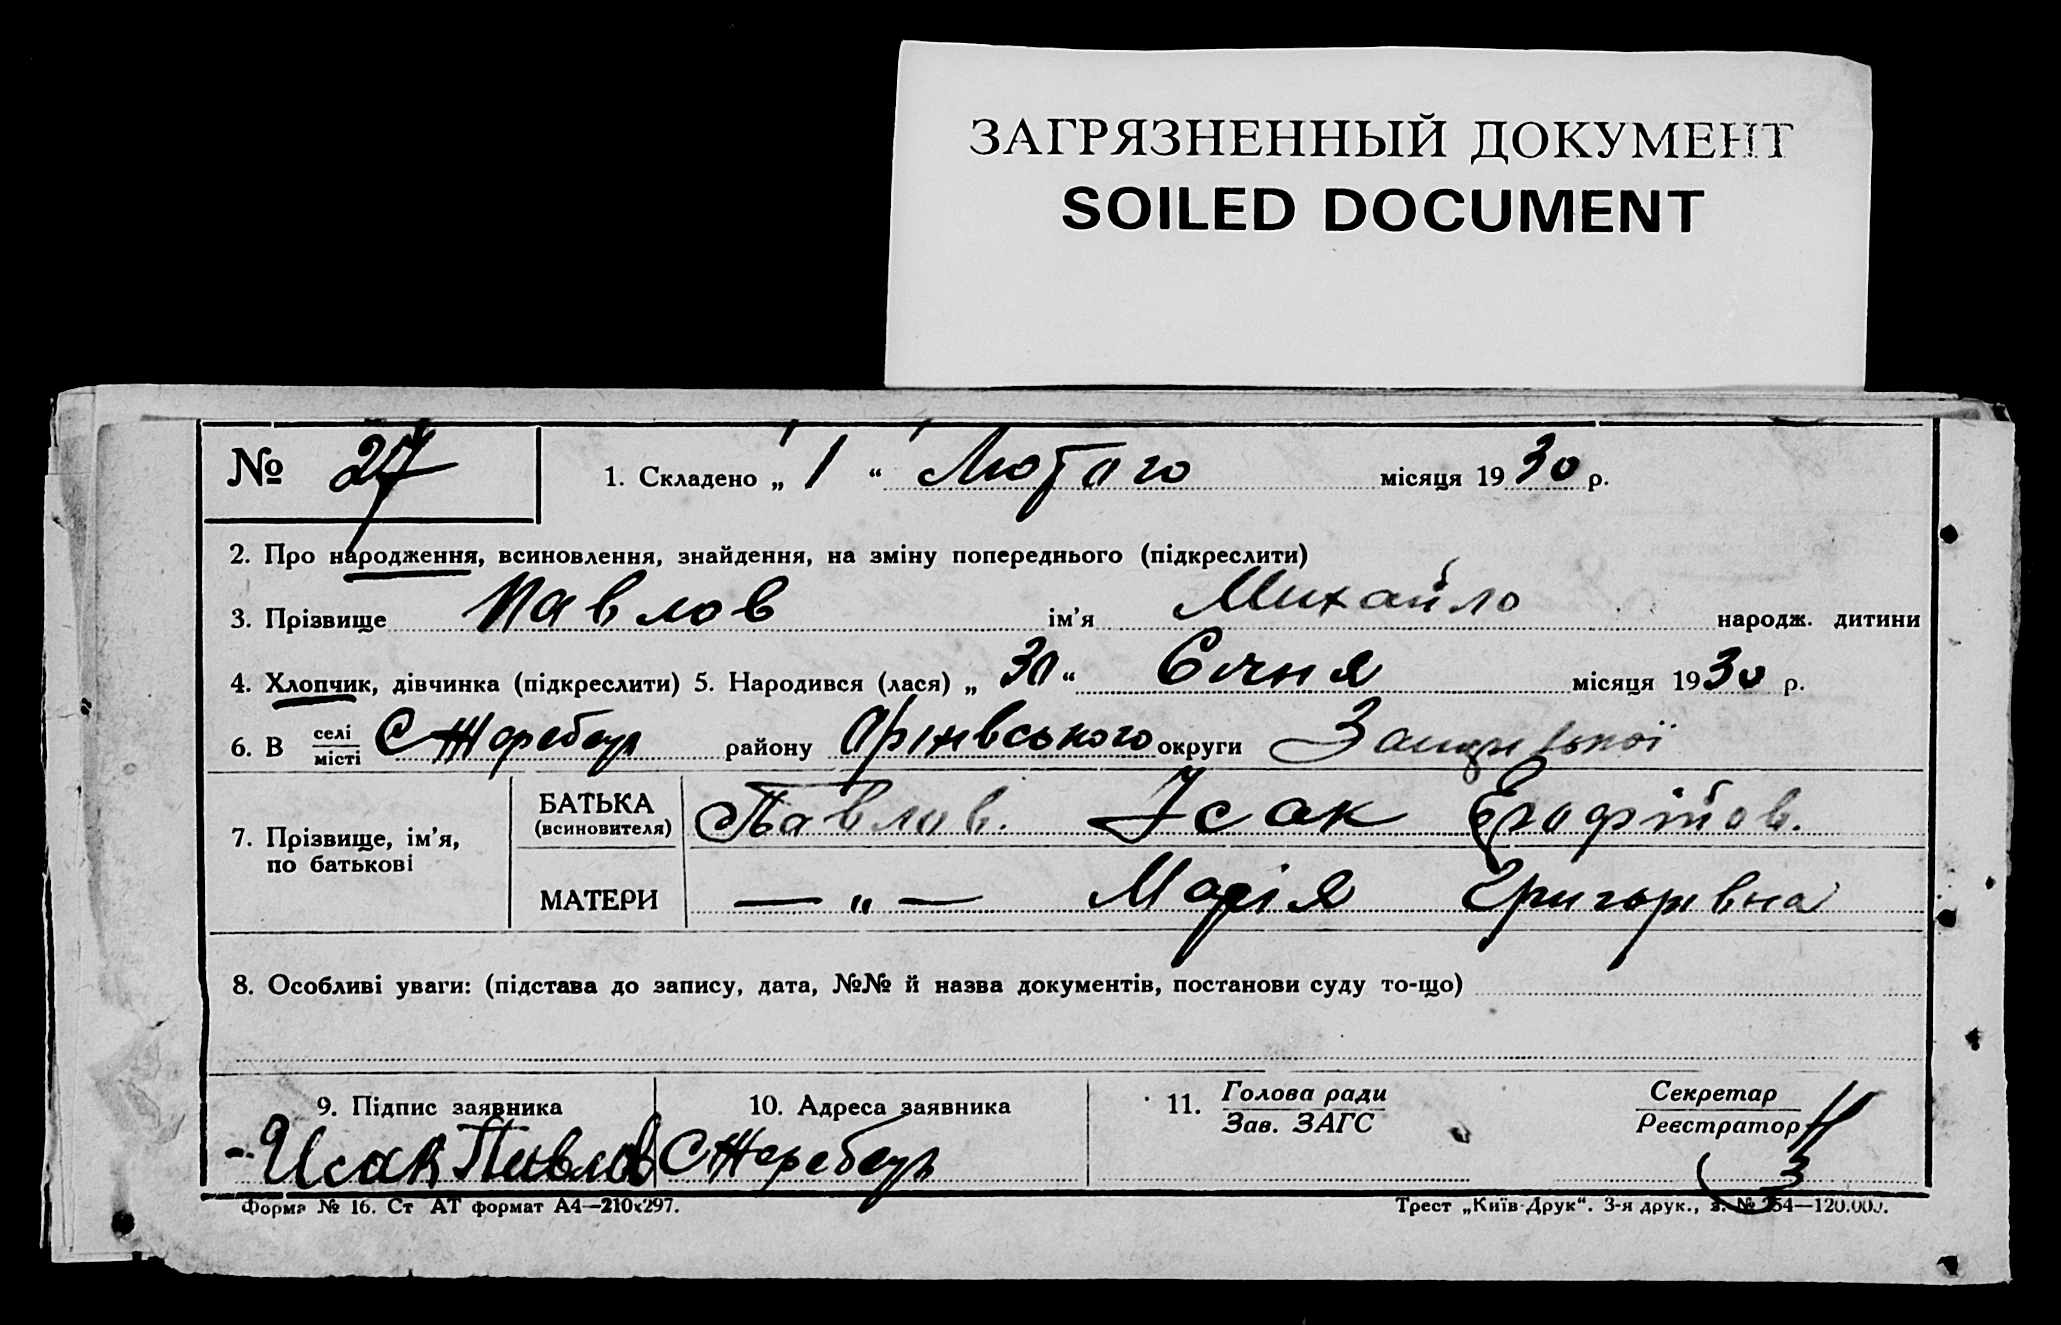 ЗАГРЯЗНЕННЫЙ ДОКУМЕНТ
SOILED DOCUMENT
№ 27
1. Складено „ 1 “ Лютого місяця 1930 р.
2. Про народження, всиновлення, знайдення, на зміну попереднього (підкреслити)
3. Прізвище Павлов ім'я Михайло народж. дитини
4. Хлопчик, дівчинка (підкреслити) 5. Народився (лася) „ 30 “ Січня місяця 1930 р.
6. В селі місті С Жеребець району Оріхівського округи
7. Прізвище, ім'я, по батькові
БАТЬКА (всиновителя) Павлов. Ісак
МАТЕРИ — „ — Марія Григорівна
8. Особливі уваги: (підстава до запису, дата, №№ й назва документів, постанови суду то-що)
9. Підпис заявника
Исак Павлов
10. Адреса заявника
С Жеребець
11. Голова ради
Зав. ЗАГС
Секретар
Реєстратор
Форма № 16. Ст АТ формат А4—210x297.
Трест „Київ-Друк“. 3-я друк., з. № 254—120.000.